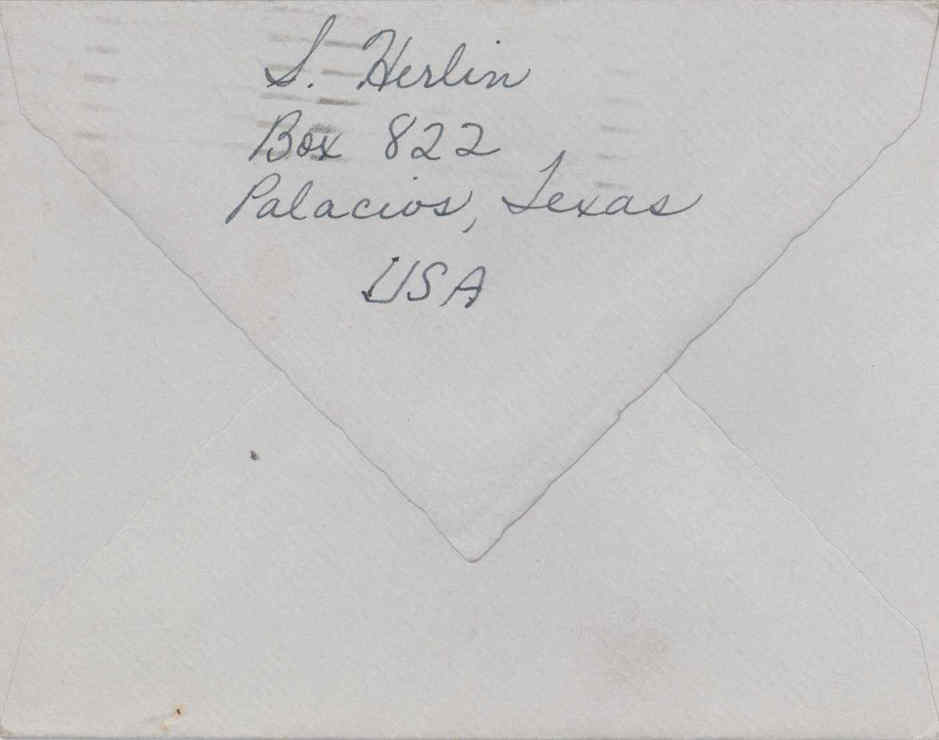 S. Herlin
Box 822
Palacios, Texas
USA